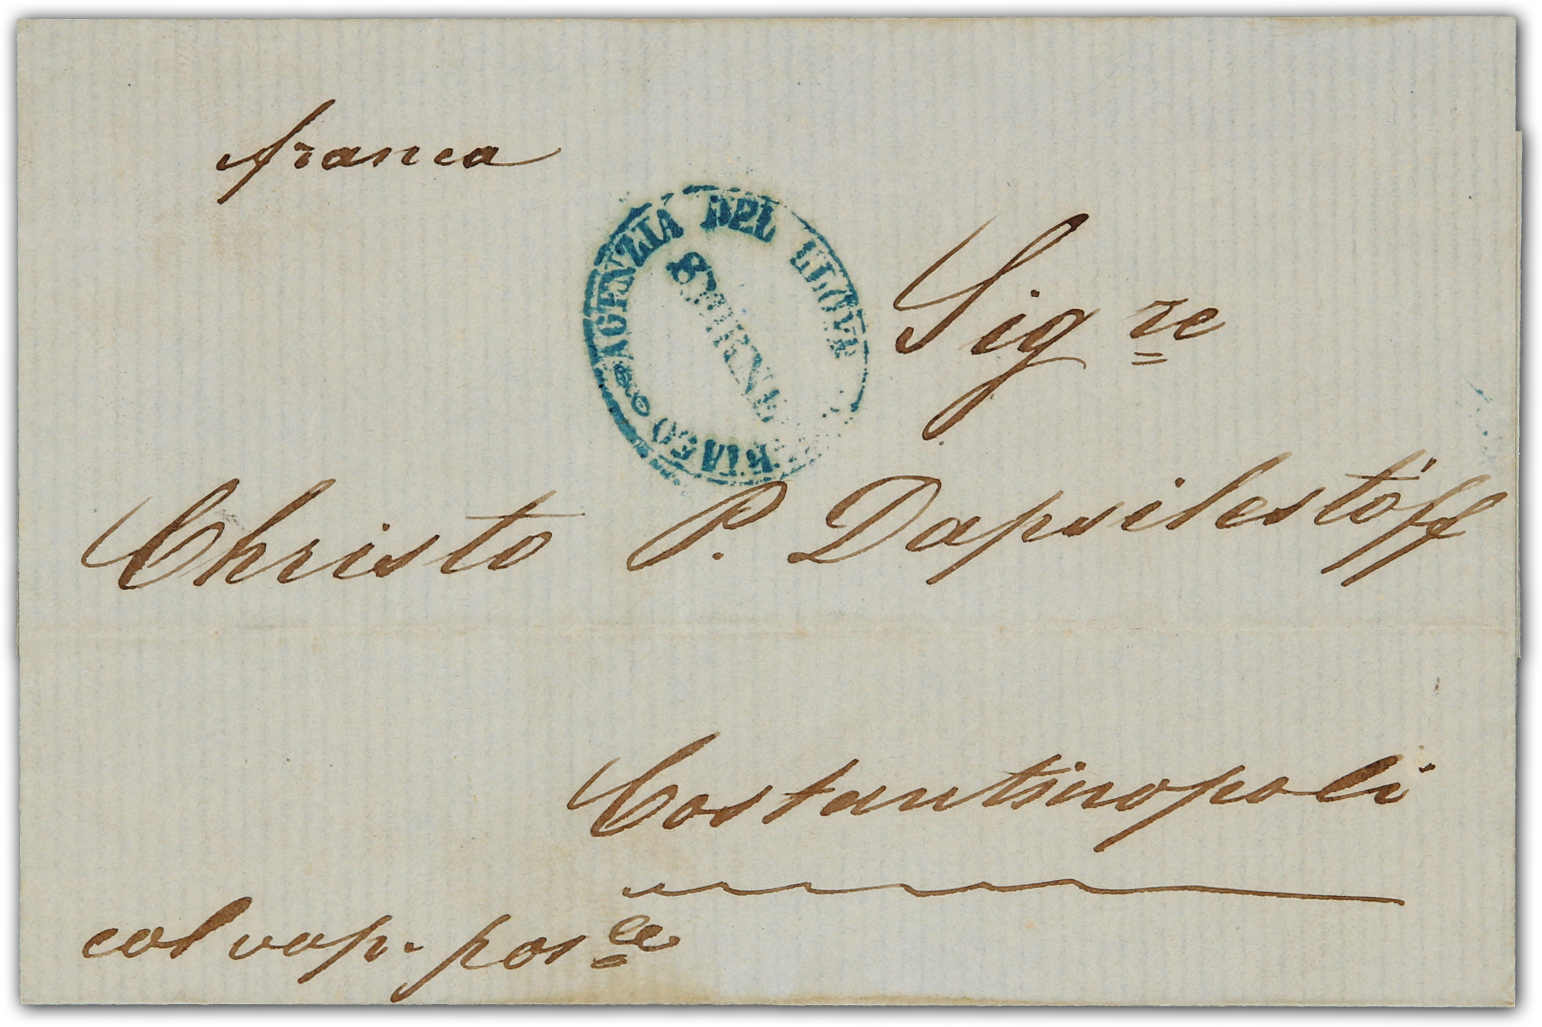 franca
AGENZIA DEL LLOYD AUSTRIACO
SMIRNE
Sig re
Christo P. Dapsilestóff
Costantinopoli
col vap. pos le